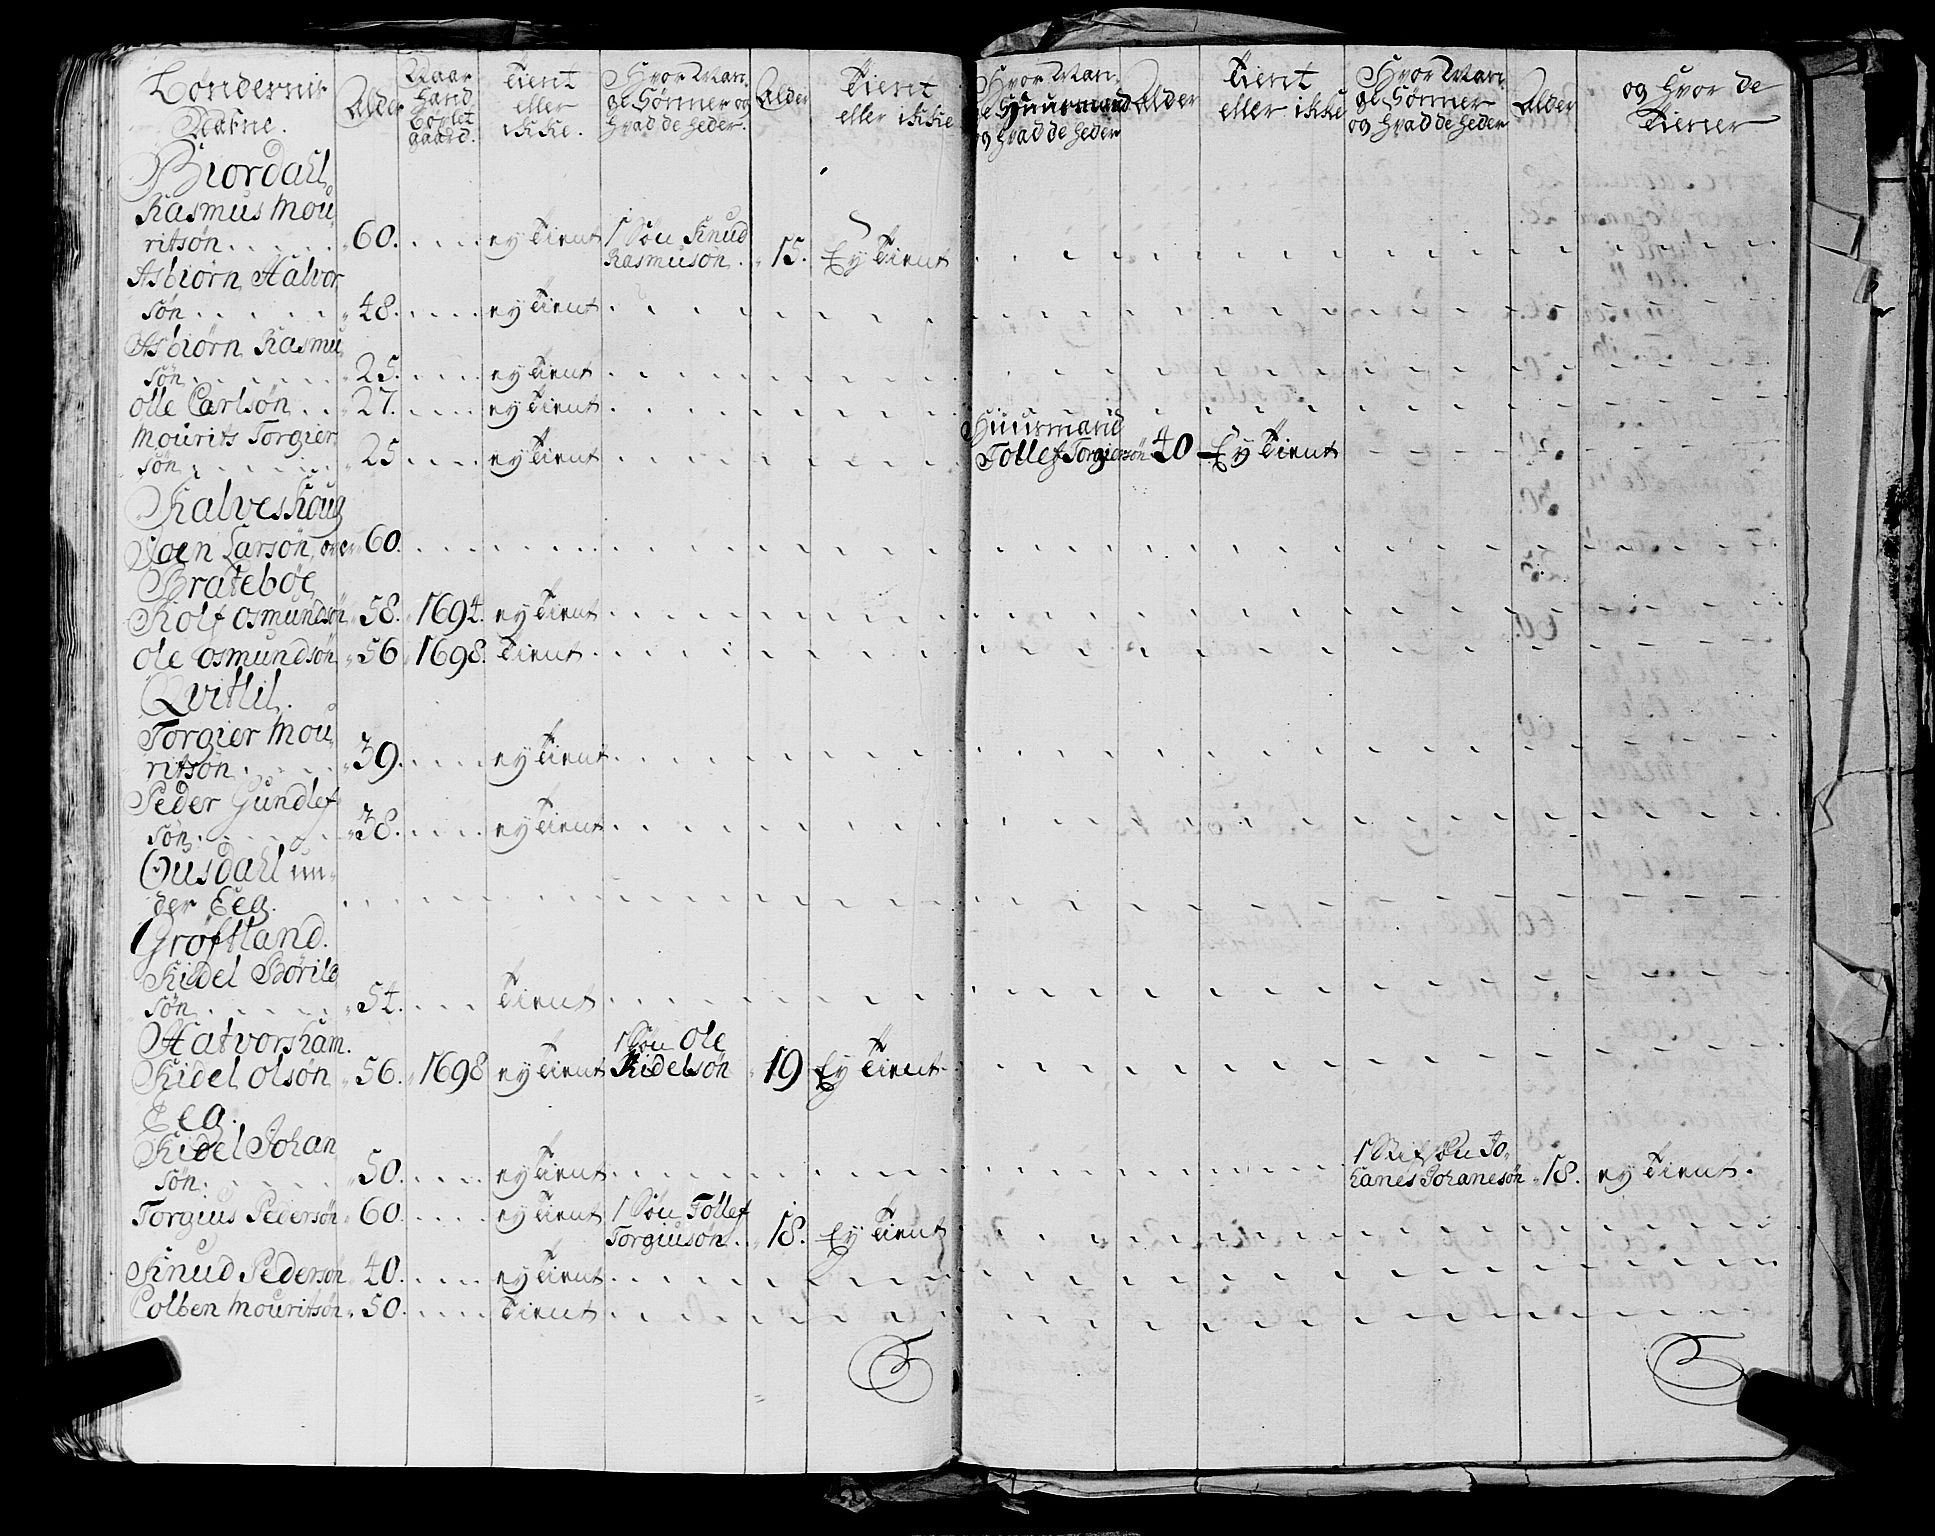 Bøndernis Nafne. Alder Naar Hand Boxlet gaard. Tient eller ikke. Hvor Man= ge Sønner og Hvad de Heder. Alder Tient eller ikke Hvor Man= ge Huusmænd og Hvad de Heder Alder Tient eller ikke Hvor Man= ge Sønner og Hvad de Heder Alder og Hvor de Tiener
Biordahl
Rasmus Mou
ritsøn . . . . . 60. . . . . ey Tient 1 Søn Knud
Rasmusøn . 15. Ey Tient
Asbiørn Halvor
søn . . . . . 48. . . . . ey Tient
Asbiørn Rasmu
søn . . . . . 25. . . . . ey Tient
Olle Carlsøn . . 27. . . . . ey Tient
Mourits Torgier
søn . . . . . 25 . . . . ey Tient Huusmand
Tollef Torgiersøn 40 Ey Tient
Kalveshoug
Joen Larsøn, over 60.
Bratebøe
Rolf Osmundsøn 58. 1694. ey Tient
Ole Osmundsøn 56 1698. Tient
Qvitlil.
Torgier Mou
ritsøn . . . . 39. . . . . ey Tient
Peder Gundlef
søn . . . . . 38. . . . . ey Tient
Ousdahl un=
der Eeg.
Grøftland.
Kidel Børild
søn . . . . . 54. . . . Tient
Halvorsham.
Kidel Olsøn 56. 1698 ey Tient 1 Søn Ole
Kidelsøn 19 Ey Tient
Eeg.
Kidel Johan
søn . . . . . 50. . . . . ey Tient 1 Stifsøn Jo=
hanes Johanesøn 18. ey Tient.
Torgius Pedersøn 60. . . . . ey Tient 1 Søn Tollef
Torgiusøn . . 18. Ey Tient
Knud Pedersøn 40. . . . . ey Tient
Colben Mouritsøn 50. . . . . Tient